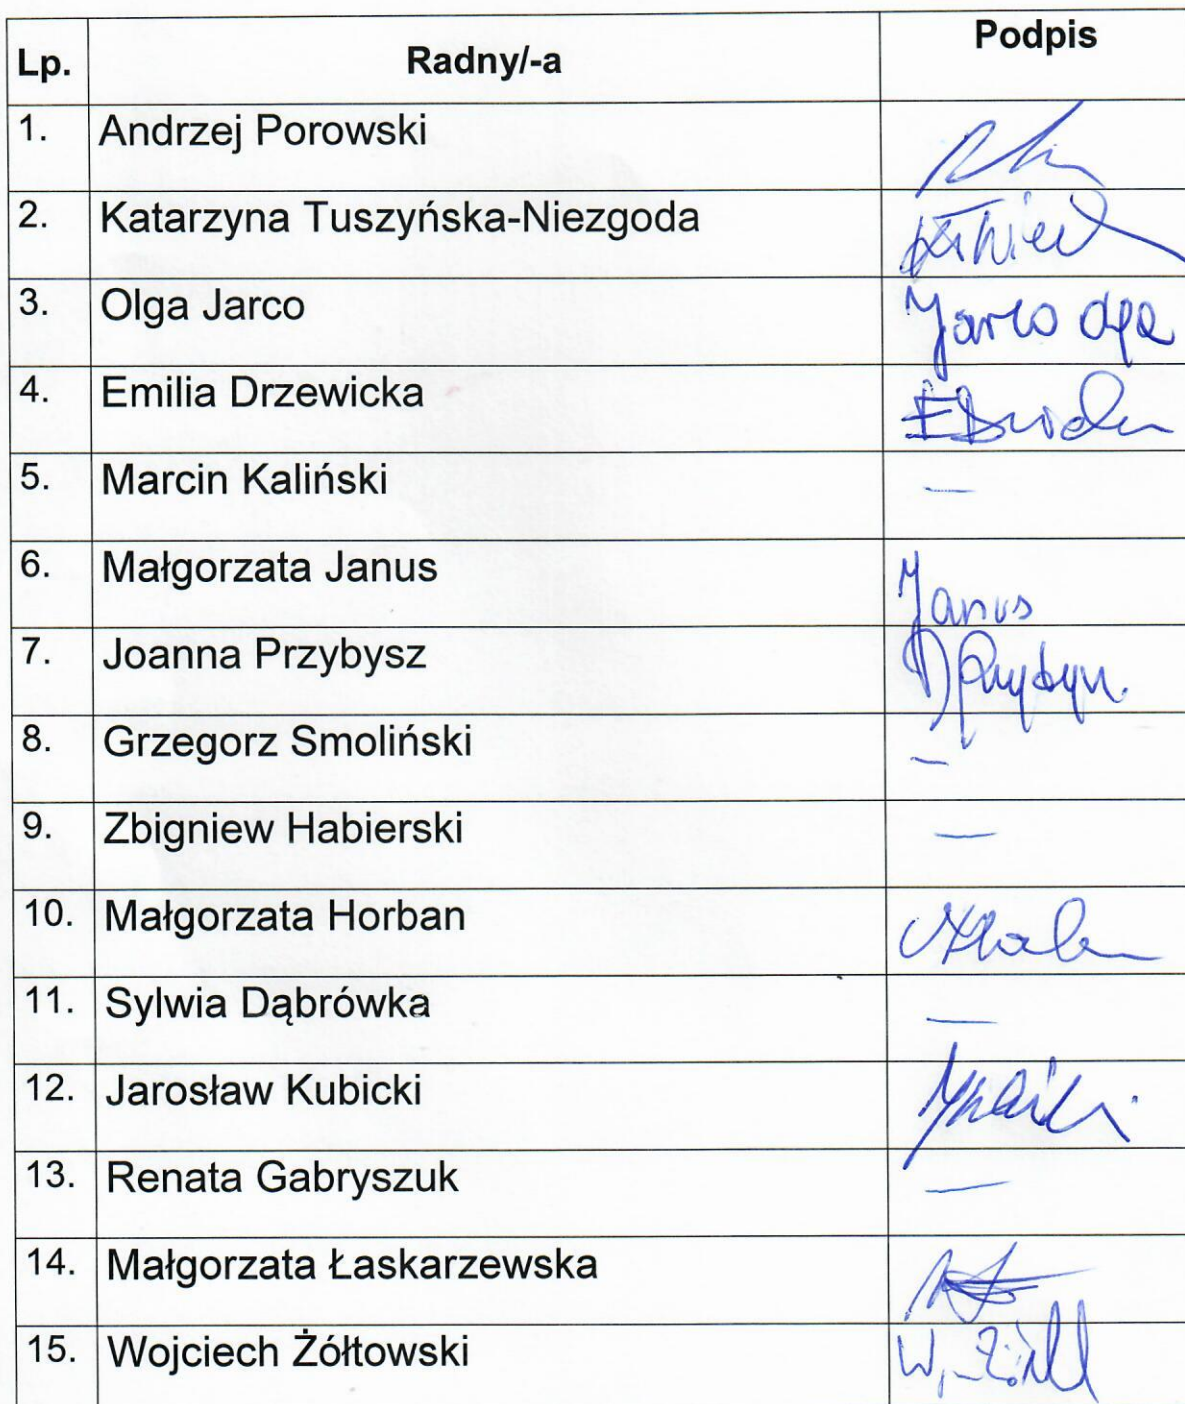 Lp. Radny/-a Podpis
1. Andrzej Porowski
2. Katarzyna Tuszyńska-Niezgoda
3. Olga Jarco Jarco Olga
4. Emilia Drzewicka
5. Marcin Kaliński —
6. Małgorzata Janus Janus
7. Joanna Przybysz
8. Grzegorz Smoliński —
9. Zbigniew Habierski —
10. Małgorzata Horban
11. Sylwia Dąbrówka —
12. Jarosław Kubicki
13. Renata Gabryszuk —
14. Małgorzata Łaskarzewska
15. Wojciech Żółtowski